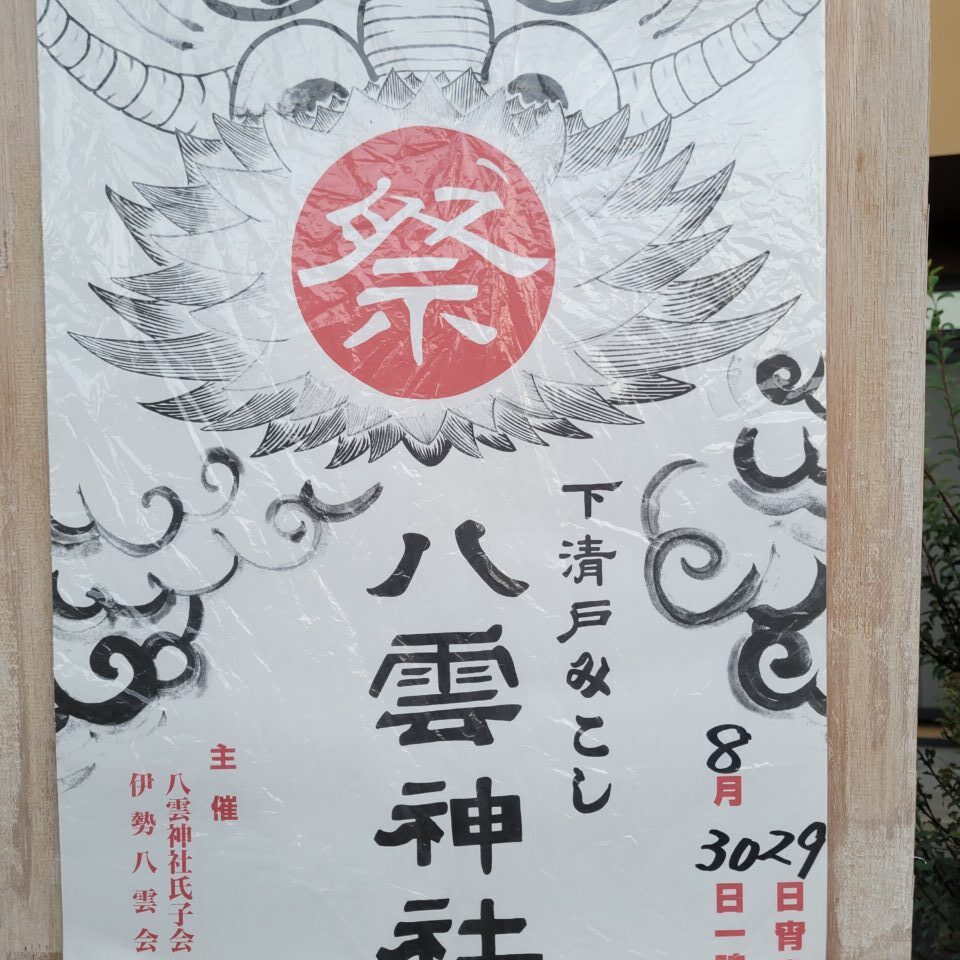 祭
8月
29日宵
30日一
下清戸みこし
八雲神社
主催
八雲神社氏子会
伊勢八雲会